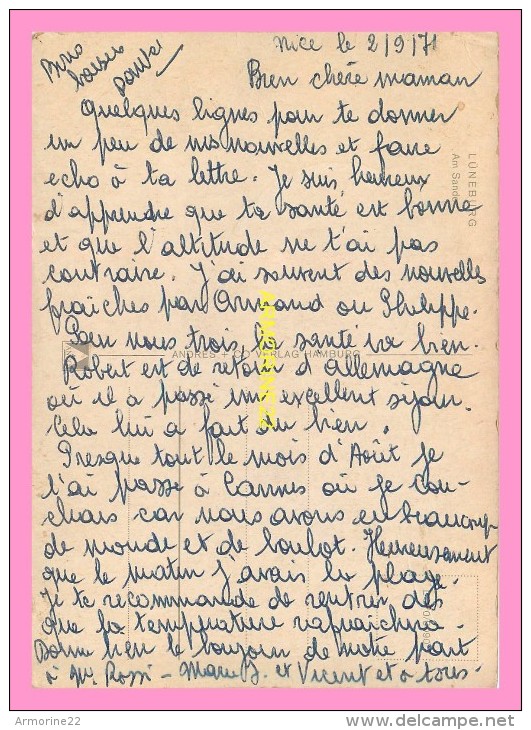 Nice le 2/9/71
Bien chère maman
Quelques lignes pour te donner
un peu de nos nouvelles et faire
echo à ta lettre. Je suis heureux
d'apprendre que ta santé est bonne
et que l'altitude ne t'ai pas
contraire. J'ai souvent des nouvelles
fraîches par Armand ou Philippe.
Pour nous trois, la santé va bien.
Robert est de retour d'allemagne
où il a passé un excellent séjour.
Cela lui a fait du bien.
Presque tout le mois d'Août je
l'ai passé à Cannes où je cou-
chais car nous avons eu beaucoup
de monde et de boulot. Heureusement
que le matin j'avais la plage.
Je te recommande de rentrer dès
que la température rafraichira.
Donne bien le bonjour de notre part
à Mr. Rossi - Marie B. et Vicent et à tous.
Gros
baisers
LÜNEBURG
Am Sande
ANDRES + CO VERLAG HAMBURG
ARMORINE 22
Armorine22
http://www.delcampe.net